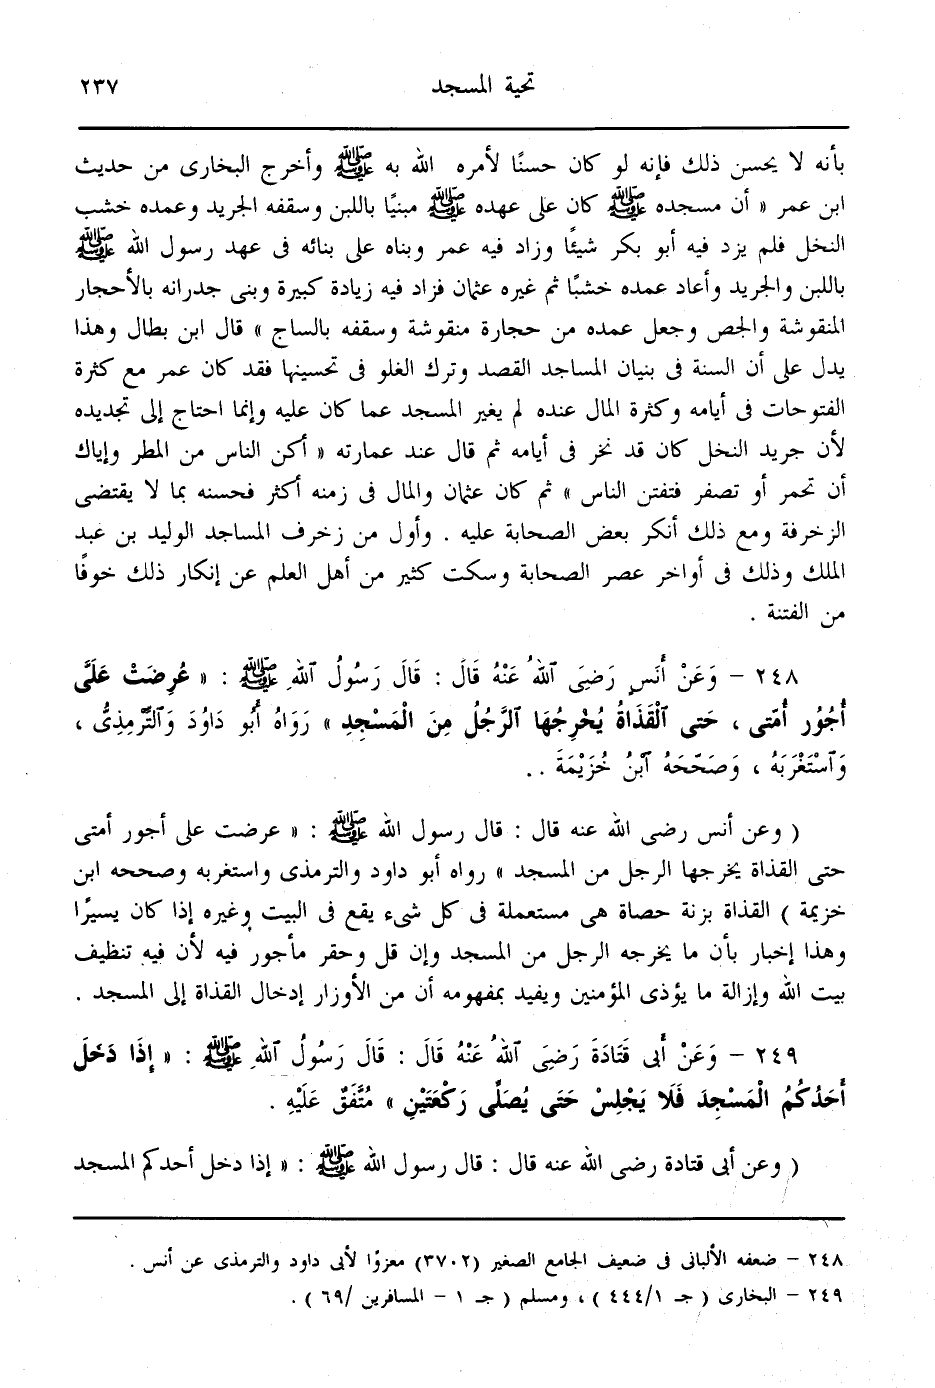 تحية المسجد ٢٣٧
بأنه لا يحسن ذلك فإنه لو كان حسنًا لأمره الله به ﷺ وأخرج البخارى من حديث
ابن عمر « أن مسجده ﷺ كان على عهده ﷺ مبنيًا باللبن وسقفه الجريد وعمده خشب
النخل فلم يزد فيه أبو بكر شيئًا وزاد فيه عمر وبناه على بنائه فى عهد رسول الله ﷺ
باللبن والجريد وأعاد عمده خشبًا ثم غيره عثمان فزاد فيه زيادة كبيرة وبنى جدرانه بالأحجار
المنقوشة والجص وجعل عمده من حجارة منقوشة وسقفه بالساج » قال ابن بطال وهذا
يدل على أن السنة فى بنيان المساجد القصد وترك الغلو فى تحسينها فقد كان عمر مع كثرة
الفتوحات فى أيامه وكثرة المال عنده لم يغير المسجد عما كان عليه وإنما احتاج إلى تجديده
لأن جريد النخل كان قد نخر فى أيامه ثم قال عند عمارته « أكن الناس من المطر وإياك
أن تحمر أو تصفر فتفتن الناس » ثم كان عثمان والمال فى زمنه أكثر فحسنه بما لا يقتضى
الزخرفة ومع ذلك أنكر بعض الصحابة عليه . وأول من زخرف المساجد الوليد بن عبد
الملك وذلك فى أواخر عصر الصحابة وسكت كثير من أهل العلم عن إنكار ذلك خوفًا
من الفتنة .
٢٤٨ – وَعَنْ أَنَسٍ رَضِىَ ٱللهُ عَنْهُ قَالَ : قَالَ رَسُولُ ٱللهِ ﷺ : « عُرِضَتْ عَلَىَّ
أُجُورُ أُمَّتى ، حَتى ٱلْقَذَاةُ يُخْرِجُهَا ٱلرَّجُلُ مِنَ الْمَسْجِدِ » رَوَاهُ أَبُو دَاوُدَ وَٱلتِّرْمِذِىُّ ،
وَٱسْتَغْرَبَهُ ، وَصَحَّحَهُ ٱبْنُ خُزَيْمَةَ . .
( وعن أنس رضى الله عنه قال : قال رسول الله ﷺ : « عرضت على أجور أمتى
حتى القذاة يخرجها الرجل من المسجد » رواه أبو داود والترمذى واستغربه وصححه ابن
خزيمة ) القذاة بزنة حصاة هى مستعملة فى كل شىء يقع فى البيت وغيره إذا كان يسيرًا
وهذا إخبار بأن ما يخرجه الرجل من المسجد وإن قل وحقر مأجور فيه لأن فيه تنظيف
بيت الله وإزالة ما يؤذى المؤمنين ويفيد بمفهومه أن من الأوزار إدخال القذاة إلى المسجد .
٢٤٩ – وَعَنْ أَبى قَتَادَةَ رَضِىَ ٱللهُ عَنْهُ قَالَ : قَالَ رَسُولُ ٱللهِ ﷺ : « إِذَا دَخَلَ
أَحَدُكُمُ الْمَسْجِدَ فَلَا يَجْلِسْ حَتى يُصَلَّى رَكْعَتَيْنِ » مُتَّفَقٌ عَلَيْهِ .
( وعن أبى قتادة رضى الله عنه قال : قال رسول الله ﷺ : « إذا دخل أحدكم المسجد
٢٤٨ – ضعفه الألبانى فى ضعيف الجامع الصغير (٣٧٠٢) معزوًا لأبى داود والترمذى عن أنس .
٢٤٩ – البخارى ( جـ ٤٤٤/١ ) ، ومسلم ( جـ ١ – المسافرين /٦٩ ) .